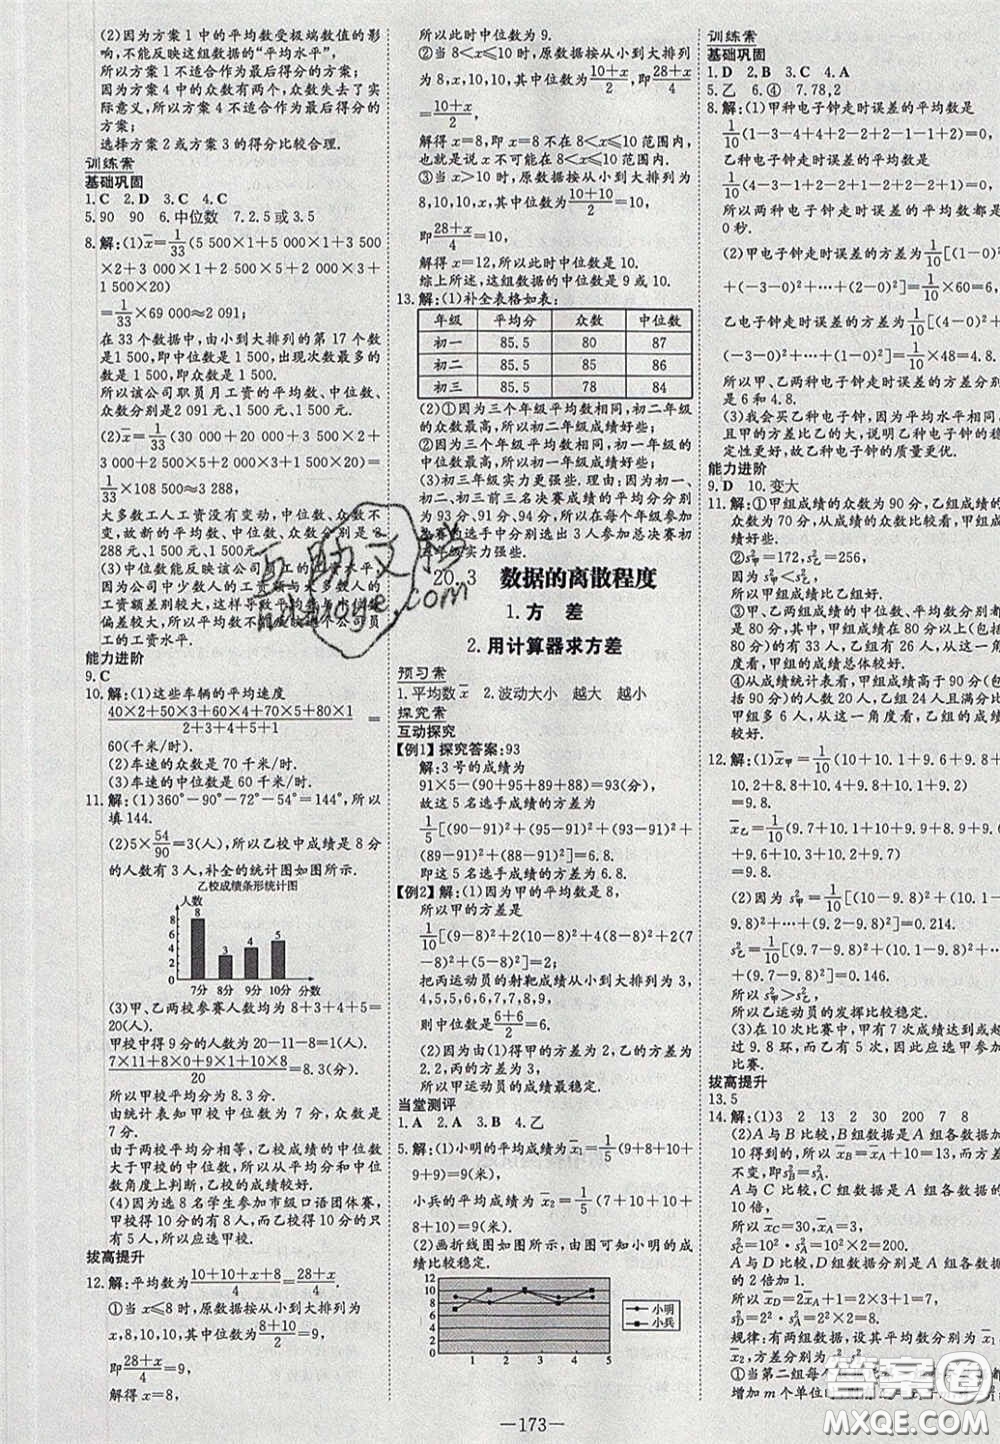 (2)因为方案 1 中的平均数受极端数值的影
响,不能反映这组数据的“平均水平”,
所以方案 1 不适合作为最后得分的方案;
因为方案 4 中的众数有两个,众数失去了实
际意义,所以方案 4 不适合作为最后得分的
方案;
选择方案 2 或方案 3 的得分比较合理.
训练案
基础巩固
1.C 2.D 3.C 4.C
5.90 90 6.中位数 7.2.5 或 3.5
8.解:(1)x̄=1/33(5 500×1+5 000×1+3 500
×2+3 000×1+2 500×5+2 000×3+
1 500×20)
=1/33×69 000≈2 091;
在 33 个数据中,由小到大排列的第 17 个数
是1 500,即中位数是1 500,出现次数最多的
数据是1 500,即众数是1 500.
所以该公司职员月工资的平均数、中位数、
众数分别是2 091 元、1 500 元、1 500 元.
(2)x̄=1/33(30 000+20 000+7 000+
3 000+2 500×5+2 000×3+1 500×20)=
1/33×108 500≈3 288,
大多数工人工资没有变动,中位数、众数不
变,故新的平均数、中位数、众数分别是3
288元、1 500 元、1 500 元.
(3)中位数能反映该公司员工的工资水平,
因为公司中少数人的工资与大多数人的
工资额差别较大,这样导致平均数与中位数
偏差较大,所以平均数不能反映这个公司员
工的工资水平.
能力进阶
9.C
10.解:(1)这些车辆的平均速度
(40×2+50×3+60×4+70×5+80×1)/(2+3+4+5+1)=
60(千米/时).
(2)车速的众数是 70 千米/时.
(3)车速的中位数是 60 千米/时.
11.解:(1)360°−90°−72°−54°=144°,所以
填 144.
(2)5×54/90=3(人),所以乙校中成绩是 8 分
的有 3 人,补全的统计图如图所示.
乙校成绩条形统计图
人数
8 3 4 5
7分 8分 9分 10分 分数
(3)甲、乙两校参赛人数均为 8+3+4+5=
20(人).
甲校中得 9 分的人数为 20−11−8=1(人).
(7×11+8×0+9×1+10×8)/20=8.3(分).
所以甲校平均分为 8.3 分.
由统计表知甲校中位数为 7 分,众数是
7 分.
由于两校平均分相等,乙校成绩的中位数大
于甲校的中位数,所以从平均分和中位数的
角度上判断,乙校的成绩较好.
(4)因为选 8 名学生参加市级口语团体赛,
甲校得 10 分的有 8 人,而乙校得 10 分的
只有 5 人,所以应选甲校.
拔高提升
12.解:平均数为(10+10+x+8)/4=(28+x)/4,
①当 x≤8 时,原数据按从小到大排列为
x,8,10,10,其中位数为(8+10)/2=9,
即(28+x)/4=9,
解得 x=8,
所以此时中位数为 9.
②当 8<x≤10 时,原数据按从小到大排列
为8,x,10,10,其中位数=(10+x)/2,即(28+x)/4=
(10+x)/2,
解得 x=8,即 x=8 不在 8<x≤10 范围内,
也就是说,x 不可能在 8<x≤10 范围内.
③当 x>10 时,原数据按从小到大排列为
8,10,10,x,其中位数为(10+10)/2=10,
即(28+x)/4=10,
解得 x=12,所以此时中位数为 10.
综上所述,这组数据的中位数是 9 或 10.
13.解:(1)补全表格如表:
年级 平均分 众数 中位数
初一 85.5 80 87
初二 85.5 85 86
初三 85.5 78 84
(2)①因为三个年级平均数相同,初二年级
的众数最高,所以初二年级成绩好些;
②因为三个年级平均数相同,初一年级的
中位数最高,所以初一年级成绩好些;
(3)初三年级实力更强些.理由:因为初一、
初二、初三各年级前三名决赛成绩的平均分分别
为 93 分、91 分、94 分,所以从各年级参加决
赛的选手中分别选出 3 人参加总决赛初
三年级实力强些.
20.3 数据的离散程度
1.方 差
2.用计算器求方差
预习案
1.平均数 x̄ 2.波动大小 越大 越小
探究案
互动探究
【例1】探究答案:93
解:3 号的成绩为
91×5−(90+95+89+88)=93(分),
故这 5 名选手成绩的方差为
1/5[(90−91)²+(95−91)²+(93−91)²+
(89−91)²+(88−91)²]=6.8.
即这 5 名选手成绩的方差为 6.8.
【例2】解:(1)因为甲的平均数是 8,
所以甲的方差是
1/10[(9−8)²+2(10−8)²+4(8−8)²+2(7
−8)²+(5−8)²]=2,
把丙运动员的射靶成绩从小到大排列为 3,
4,5,5,6,6,7,7,8,9,
则中位数是(6+6)/2=6.
(2)因为(1)得甲的方差为 2,乙的方差为
2.2,丙的方差是 3,
所以甲运动员的成绩最稳定.
当堂测评
1.A 2.A 3.B 4.乙
5.解:(1)小明的平均成绩为x̄₁=1/5(9+8+10
+9+9)=9(米),
小兵的平均成绩为 x̄₂=1/5(7+10+10+
8+10)=9(米).
(2)画折线图如图所示,由图可知小明的成
绩比较稳定.
12 10 8 6 4 2 0
1 2 3 4 5
小明
小兵
训练案
基础巩固
1.D 2.B 3.C 4.A
5.乙 6.④ 7.78,2
8.解:(1)甲种电子钟走时误差的平均数是
1/10(1−3−4+4+2−2+2−1−1+2)=0,
乙种电子钟走时误差的平均数是
1/10(4−3−1+2−2+1−2+2−2+1)=0,
所以两种电子钟走时误差的平均数都是
0 秒.
(2)甲种电子钟走时误差的方差是1/10[(1−0)²
+(−3−0)²+⋯+(2−0)²]=1/10×60=6.
乙种电子钟走时误差的方差是1/10[(4−0)²+
(−3−0)²+⋯+(1−0)²]=1/10×48=4.8.
所以甲、乙两种电子钟走时误差的方差分别
是 6 和 4.8.
(3)我会买乙种电子钟,因为平均水平相同,
且甲的方差比乙的大,说明乙种电子钟的稳
定性更好,故乙种电子钟的质量更优.
能力进阶
9.D 10.变大
11.解:①甲组成绩的众数为 90 分,乙组成绩的
众数为 70 分,从成绩的众数比较看,甲组成
绩好些.
②s²甲=172,s²乙=256,
因为s²甲<s²乙,
分 33 人,乙组 26 人,从这一角度看,甲组的
成绩总体较好.
④从成绩统计表看,甲组成绩高于 80 分(包
括 90 分)的人数 20 人,乙组 24 人,
甲组多 6 人,从这一角度看,乙组的成绩
较好.
12.解:(1)x̄甲=1/10(10+10.1+9.6+9.8+
10.2+8.8+10.4+9.8+10.1+9.2)
=9.8.
x̄乙=1/10(9.7+10.1+10+9.9+8.9+9.6
+9.6+10.3+10.2+9.7)=9.8.
(2)因为 s²甲=1/10[(10−9.8)²+(10.1−
9.8)²+⋯+(9.2−9.8)²]=0.214.
s²乙=1/10[(9.7−9.8)²+(10.1−9.8)²+⋯+
(9.7−9.8)²]=0.146.
所以 s²甲>s²乙,
所以乙运动员的发挥比较稳定.
(3)在 10 次比赛中,甲有 7 次成绩达到或超
过 9.8 环,而乙有 5 次,因此,应选甲参加
比赛.
拔高提升
13.5
14.解:(1)3 2 13 2 30 200 7 8
(2)A 与 B 比较,B 组数据是 A 组各数据加
10 得到的,所以 x̄B=x̄A+10=13,而方差
不变,即s²B=s²A.
A 与 C 比较,C 组数据是 A 组各数据的
10 倍,
所以 x̄C=30,x̄A=3,
s²C=10²·s²A=10²×2=200.
A 与 D 比较,D 组数据分别是 A 组各数据
的 2 倍加 1.
所以 x̄D=2×x̄A+1=2×3+1=7,
规律:有两组数据,设其平均数分别为 x̄₁,
①当第二组每个数据比第一组每个数据
增加 m 个单位时
—173—
互助文档
答案圈
MXQE.COM